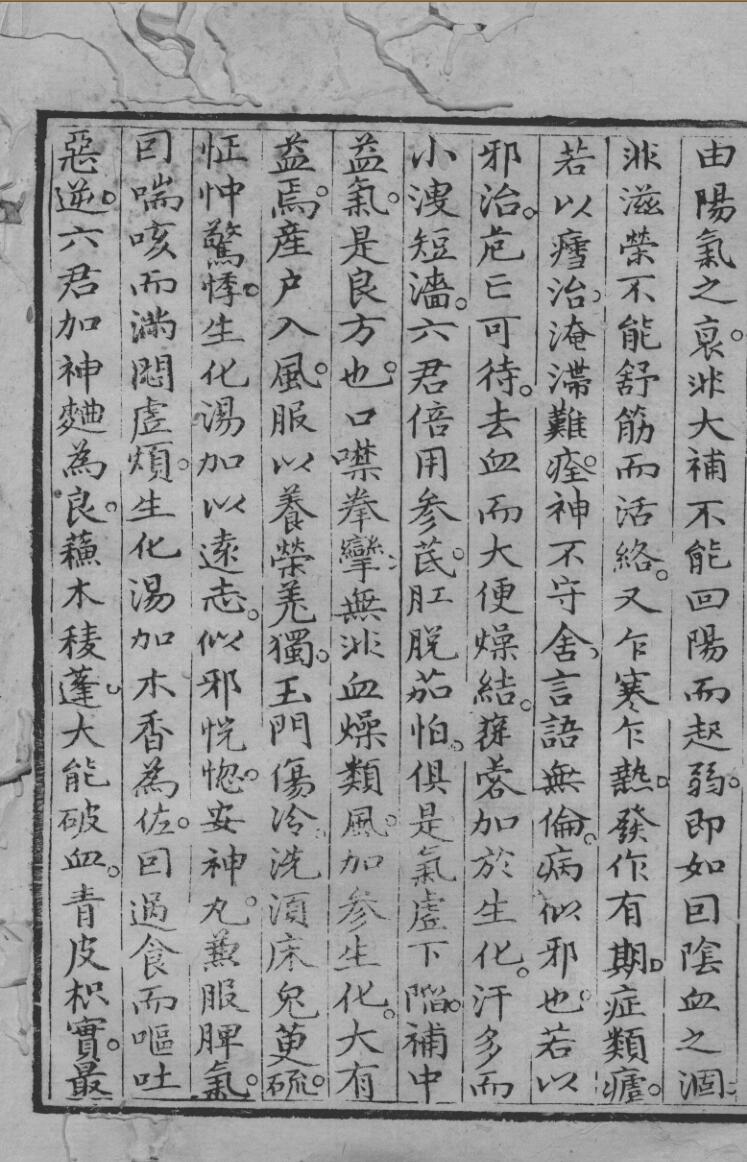 由陽氣之衰。非大補不能回陽而起弱。即如回陰血之涸。
非滋榮不能舒筋而活絡。又乍寒乍熱。發作有期。症類瘧。
若以瘧治。淹滯難痊。神不守舍。言語無倫。病似邪也。若以
邪治。危亡可待。去血而大便燥結。蓯蓉加於生化。汗多而
小溲短濇。六君倍用參芪。肛脱茄怕。俱是氣虛下陷。補中
益氣。是良方也。口噤拳攣。無非血燥類風。加參生化。大有
益焉。產户入風。服以養榮羌獨。玉門傷冷。洗須床皃萸硫。
怔忡驚悸。生化湯加以遠志。似邪恍惚。安神丸兼服脾氣。
回喘咳而滿悶虛煩。生化湯加木香為佐。回過食而嘔吐
惡逆。六君加神麯為良。蘓木稜蓬。大能破血。青皮枳實。最